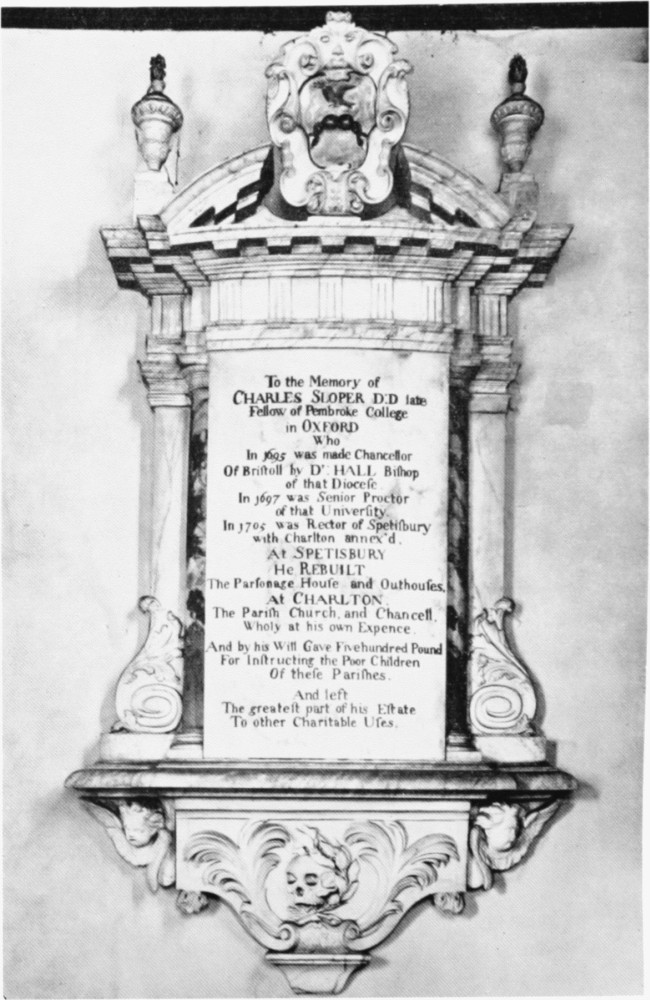 To the Memory of
CHARLES SLOPER D:D late
Fellow of Pembroke College
in OXFORD
Who
In 1695 was made Chancellor
Of Briſtoll by Dʳ. HALL Biſhop
of that Dioceſe
In 1697 was Senior Proctor
of that Univerſity.
In 1705 was Rector of Spetiſbury
with Charlton annex'd.
At SPETISBURY
He REBUILT
The Parſonage Houſe and Outhouſes,
At CHARLTON.
The Pariſh Church, and Chancell,
Wholy at his own Expence.
And by his Will Gave Fivehundred Pound
For Inſtructing the Poor Children
Of theſe Pariſhes.
And left
The greateſt part of his Eſtate
To other Charitable Uſes.